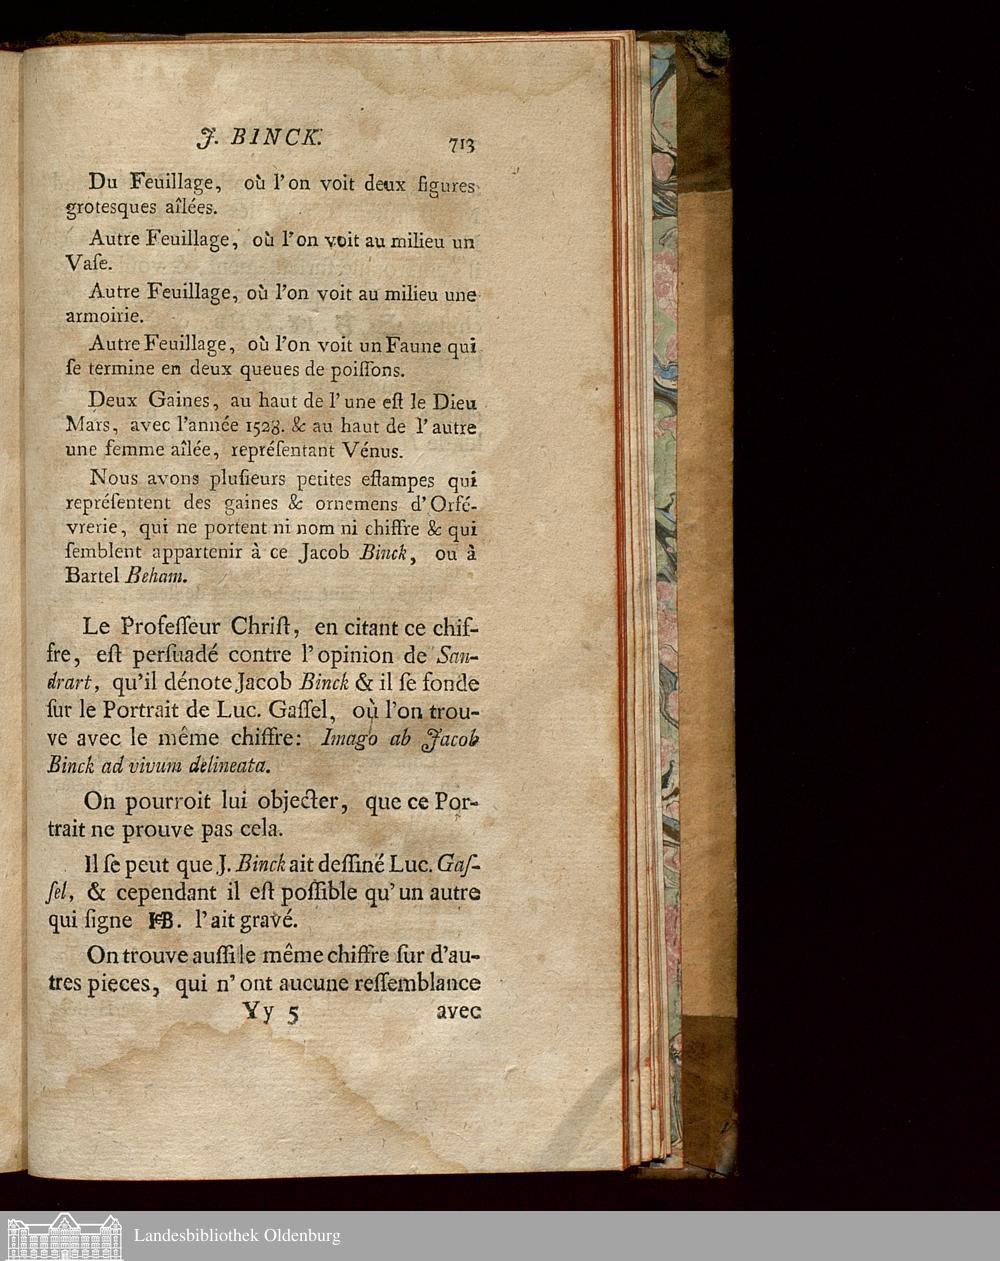 J. BINCK. 713
Du Feuillage, où l'on voit deux figures
grotesques aîlées.
Autre Feuillage, où l'on voit au milieu un
Vaſe.
Autre Feuillage, où l'on voit au milieu une
armoirie.
Autre Feuillage, où l'on voit un Faune qui
ſe termine en deux queues de poiſſons.
Deux Gaines, au haut de l'une eſt le Dieu
Mars, avec l'année 1528. & au haut de l'autre
une femme aîlée, repréſentant Vénus.
Nous avons pluſieurs petites eſtampes qui
repréſentent des gaines & ornemens d'Orfé-
vrerie, qui ne portent ni nom ni chiffre & qui
ſemblent appartenir à ce Jacob Binck, ou à
Bartel Beham.
Le Profeſſeur Chriſt, en citant ce chif-
fre, eſt perſuadé contre l'opinion de San-
drart, qu'il dénote Jacob Binck & il ſe fonde
ſur le Portrait de Luc. Gaſſel, où l'on trou-
ve avec le même chiffre: Imago ab Jacob
Binck ad vivum delineata.
On pourroit lui objecter, que ce Por-
trait ne prouve pas cela.
Il ſe peut que J. Binck ait deſſiné Luc. Gaſ-
ſel, & cependant il eſt poſſible qu'un autre
qui ſigne . l'ait gravé.
On trouve auſſi le même chiffre ſur d'au-
tres pieces, qui n'ont aucune reſſemblance
Yy 5 avec
Landesbibliothek Oldenburg